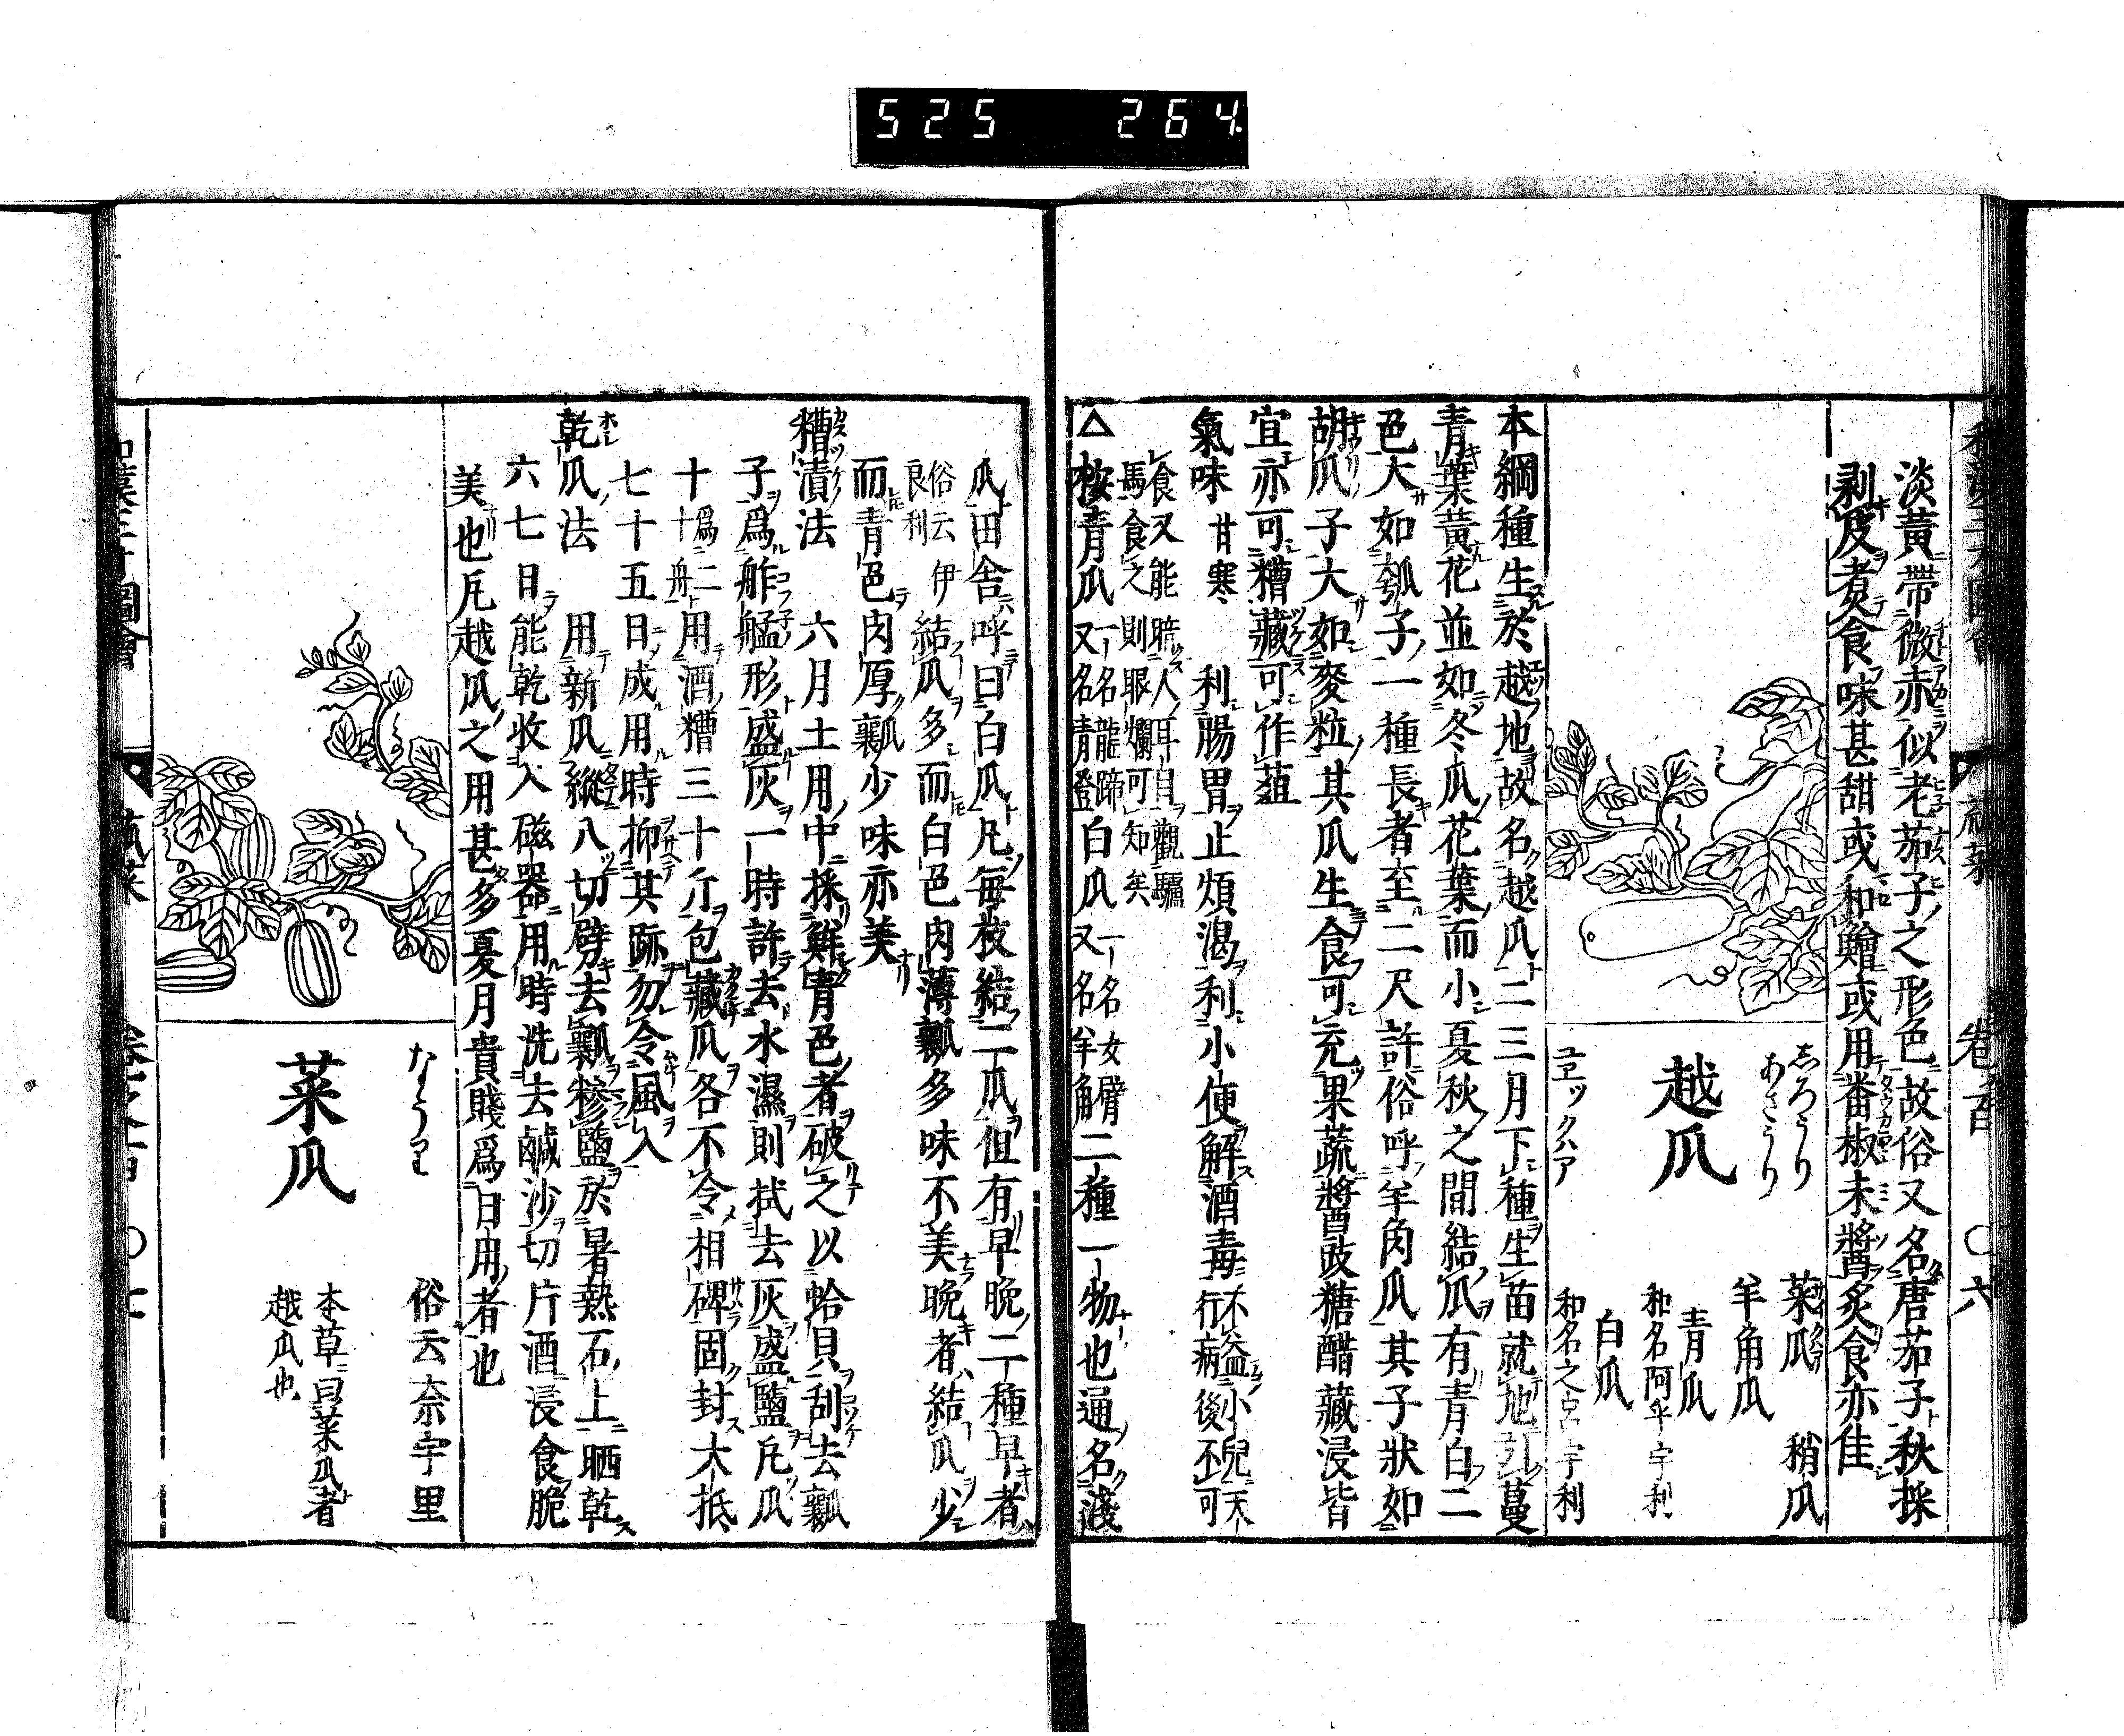 525 264
淡黃帶微赤似老茄子之形色故俗又名唐茄子秋採
剥皮煮食味甚甜或和鱠或用番椒未醬炙食亦佳
越瓜
しろうり
あさうり
ユエックハア
菜瓜 稍瓜
羊角瓜
青瓜
和名阿乎宇利
白瓜
和名之呂宇利
本綱種生於越地故名越瓜二三月下種生苗就地引蔓
青葉黃花並如冬瓜花葉而小夏秋之間結瓜有青白二
色大如瓠子一種長者至二尺許俗呼羊角瓜其子狀如
胡瓜子大如麥粒其瓜生食可充果蔬醬豉糖醋藏浸皆
宜亦可糟藏可作葅
氣味 甘寒 利腸胃止煩渴利小便解酒毒 不益小兒天行病後不可
食又能暗人耳目觀驢馬食之則眼爛可知矣
△按青瓜 一名龍蹄 又名青登 白瓜 一名女臂 又名羊角 二種一物也通名淺
瓜田舎呼曰白瓜凡毎枝結二瓜但有早晚二種早者
俗云伊良利 結瓜多而白色肉薄瓤多味不美晚者結瓜少
而青色肉厚瓤少味亦美
糟漬法 六月土用中採鮮青色者破之以蛤貝刮去瓤
子爲舴艋形盛灰一時許去水濕則拭去灰盛鹽凡瓜
十爲二十舟用酒糟三十斤包藏瓜各不令相碑固封大抵
七十五日成用時抑其跡勿令風入
乾瓜法 用新瓜縱八切劈去瓤糝鹽於暑熱石上晒乾
六七日能乾收入磁器用時洗去鹹沙切片酒浸食脆
美也凡越瓜之用甚多夏月貴賤爲日用者也
菜瓜
なうり
俗云奈宇里
本草曰菜瓜者
越瓜也